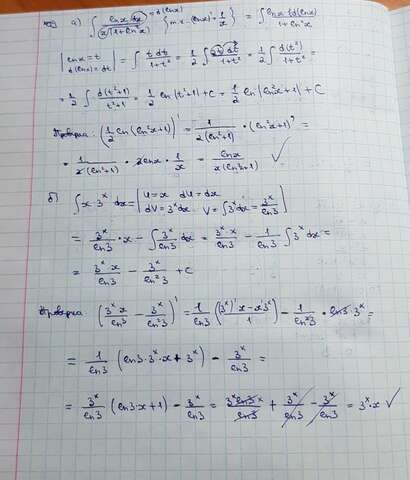 а) ∫ lnx dx / x(1+ln²x) = d(lnx) {т.к. (lnx)' = 1/x} = ∫ lnx d(lnx) / 1+ln²x =
| lnx = t  d(lnx) = dt | = ∫ t dt / 1+t² = 1/2 ∫ 2t dt / 1+t² = 1/2 ∫ d(t²) / 1+t² =
= 1/2 ∫ d(t²+1) / t²+1 = 1/2 ln(t²+1) + C = 1/2 ln|ln²x+1| + C
Проверка: (1/2 ln(ln²x+1))' = 1 / 2(ln²+1) · (ln²x+1)' =
= 1 / 2(ln²+1) · 2lnx · 1/x = lnx / x(ln²x+1) ✓
б) ∫ x·3ˣ dx = | U=x  dU=dx  dV=3ˣdx  V=∫3ˣdx = 3ˣ/ln3 | =
= 3ˣ/ln3 · x − ∫ 3ˣ/ln3 dx = 3ˣ·x/ln3 − 1/ln3 ∫ 3ˣ dx =
= 3ˣ x/ln3 − 3ˣ/ln²3 + C
Проверка (3ˣ x/ln3 − 3ˣ/ln²3)' = 1/ln3 ((3ˣ)'x − x'3ˣ / 1) − 1/ln²3 · ln3·3ˣ =
= 1/ln3 (ln3·3ˣ·x + 3ˣ) − 3ˣ/ln3 =
= 3ˣ/ln3 (ln3·x+1) − 3ˣ/ln3 = 3ˣ ln3 x/ln3 + 3ˣ/ln3 − 3ˣ/ln3 = 3ˣ·x ✓